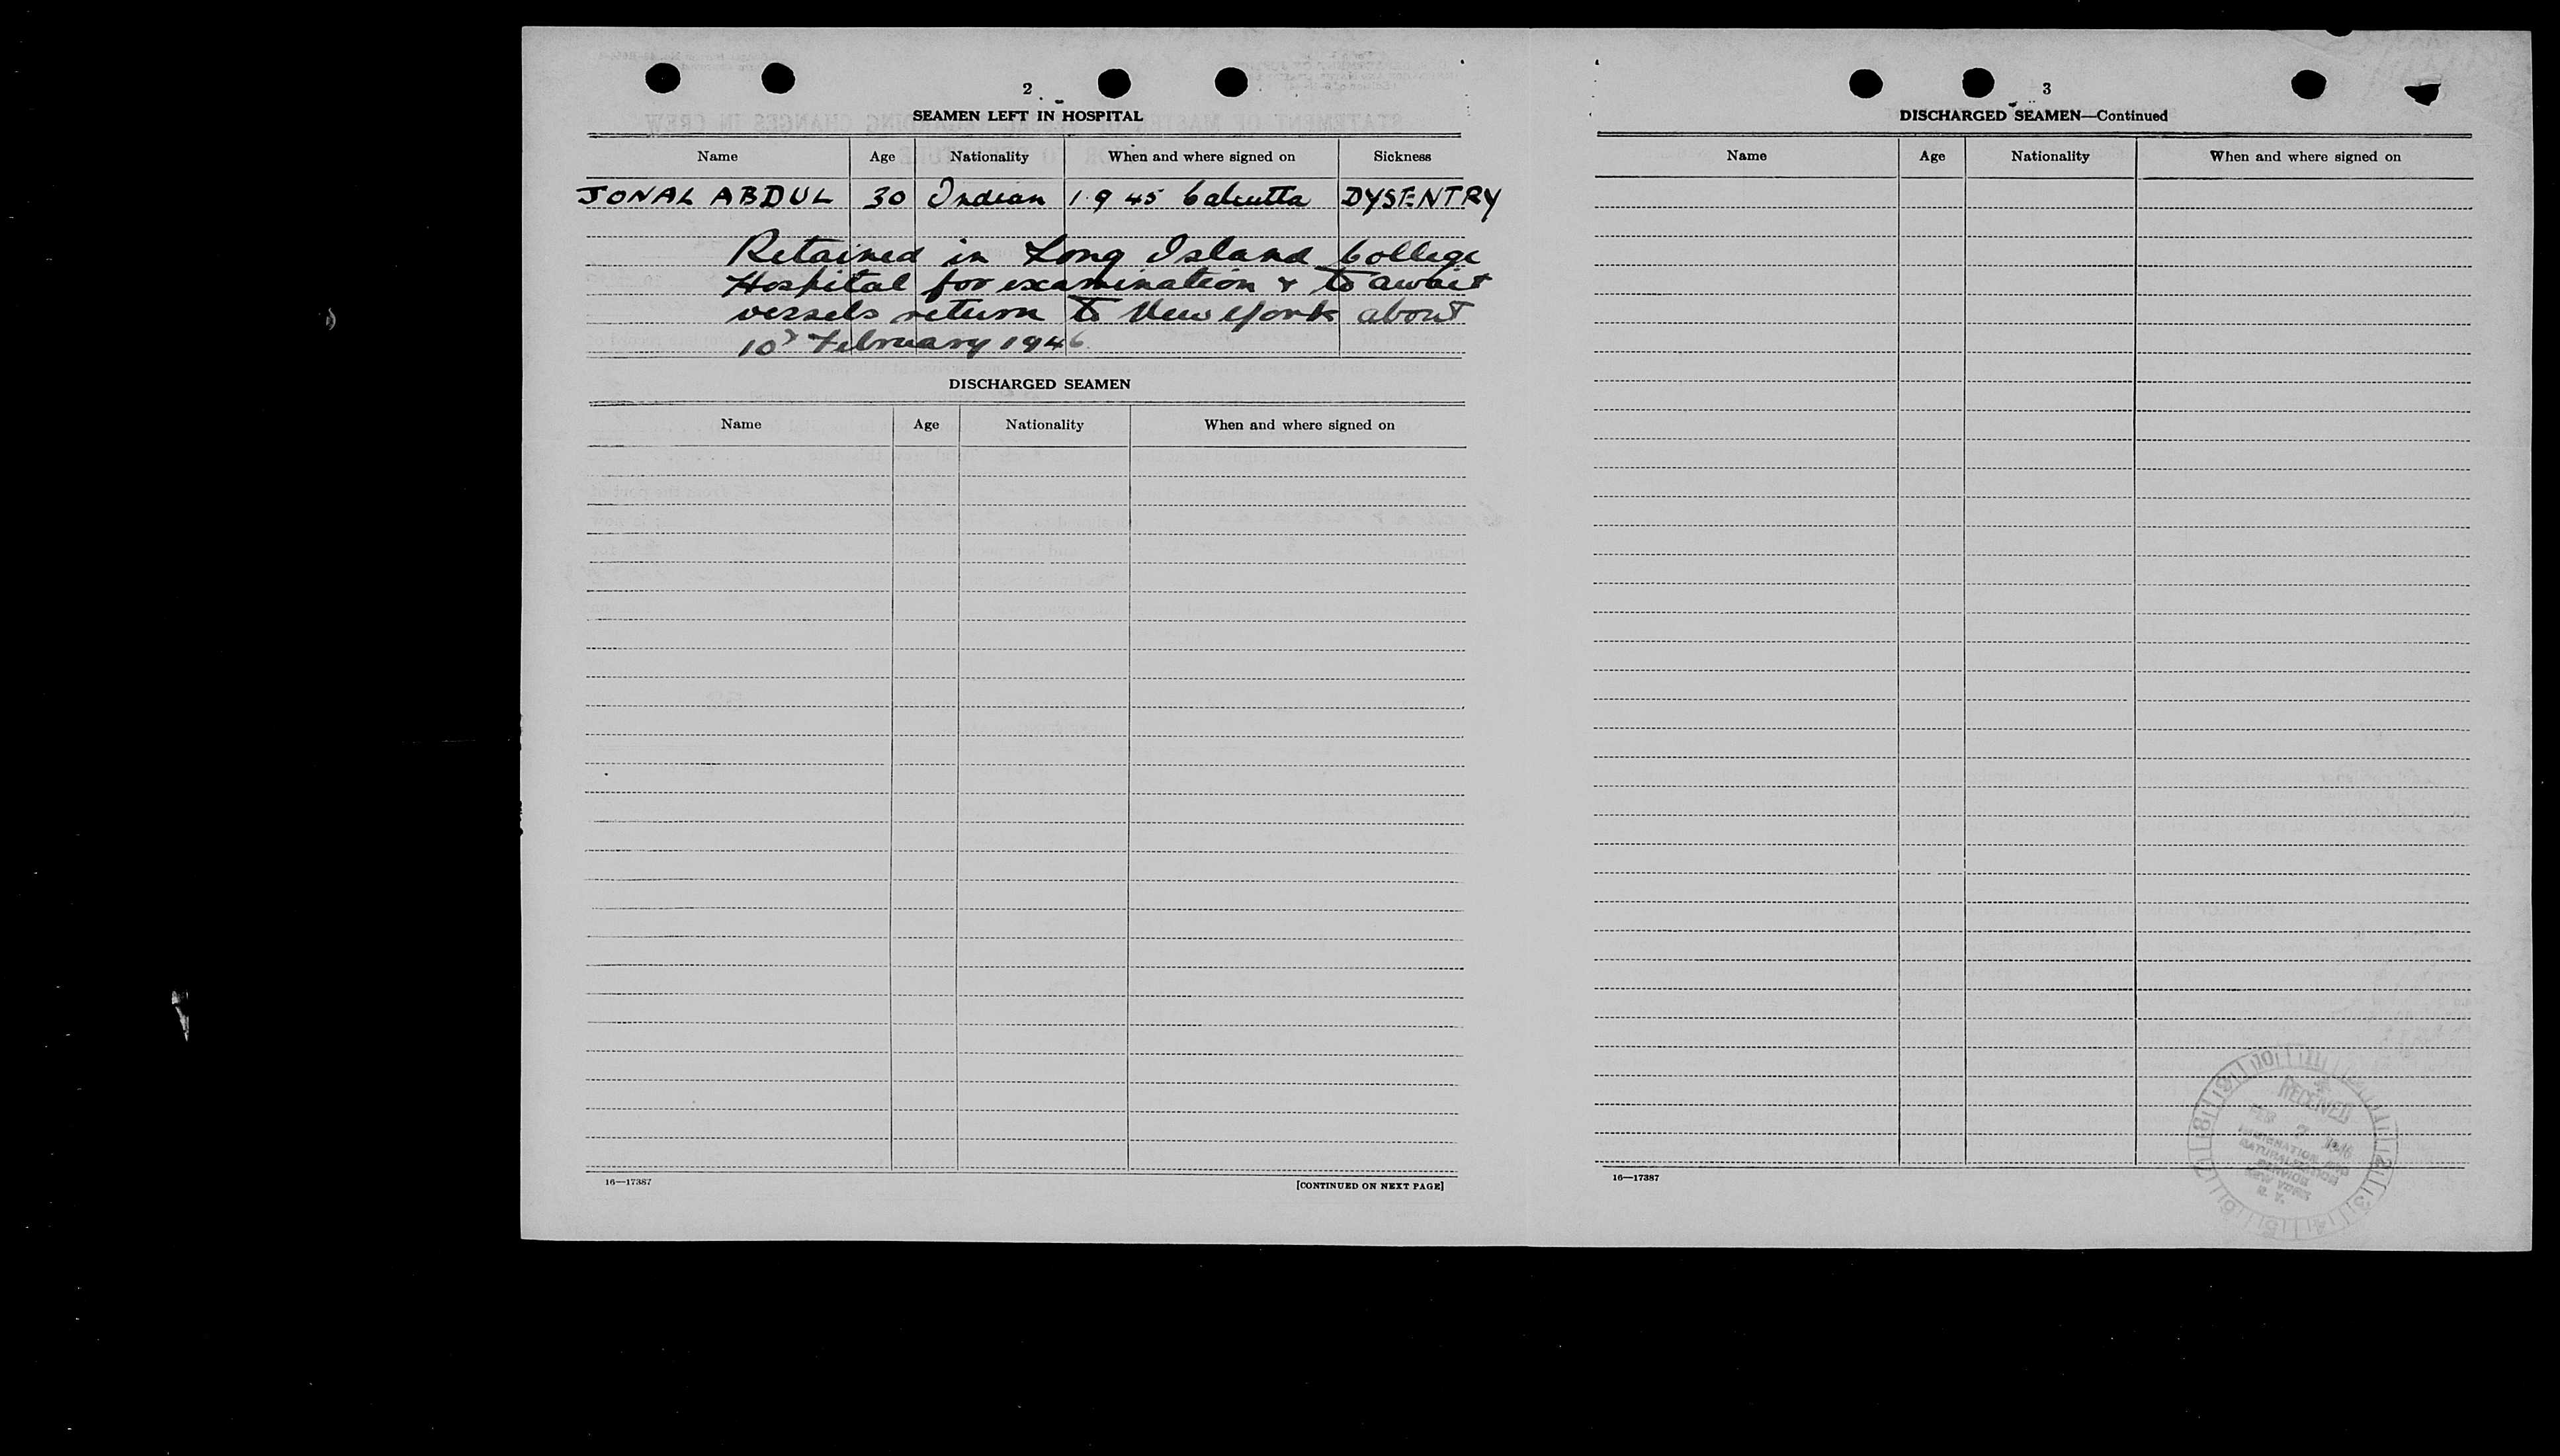 2
SEAMEN LEFT IN HOSPITAL
Name Age Nationality When and where signed on Sickness
JONAL ABDUL 30 Indian 1.9 45 Calcutta DYSENTRY
Retained in Long Island College
Hospital for examination & to await
vessels return to New York about
10 February 1946
DISCHARGED SEAMEN
Name Age Nationality When and where signed on
16—17387 [CONTINUED ON NEXT PAGE]
3
DISCHARGED SEAMEN—Continued
Name Age Nationality When and where signed on
RECEIVED
FEB 7 1946
IMMIGRATION AND
NATURALIZATION
SERVICE
NEW YORK
N. Y.
16—17387